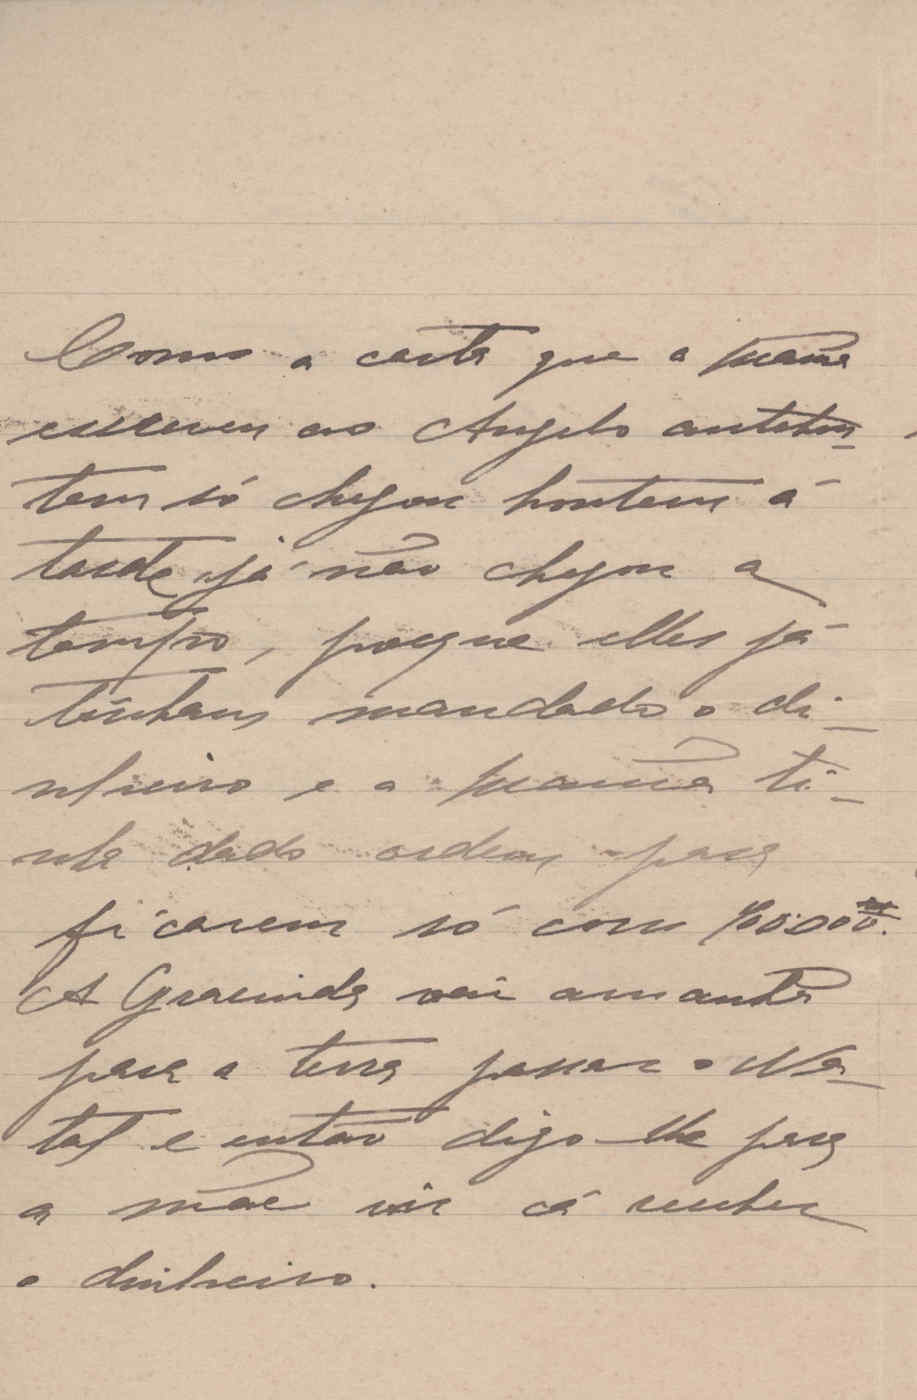 Como a carta que a Mamã
escreveu ao Angelo antehon-
tem só chegou hontem á
tarde já não chegou a
tempo, porque elles já
tinham mandado o di-
nheiro e a Mamã ti-
nha dado ordem para
ficarem só com
A Gracinda vai amanhã
para a terra passar o Na-
tal e então digo-lhe para
a mãe vir cá receber
o dinheiro.